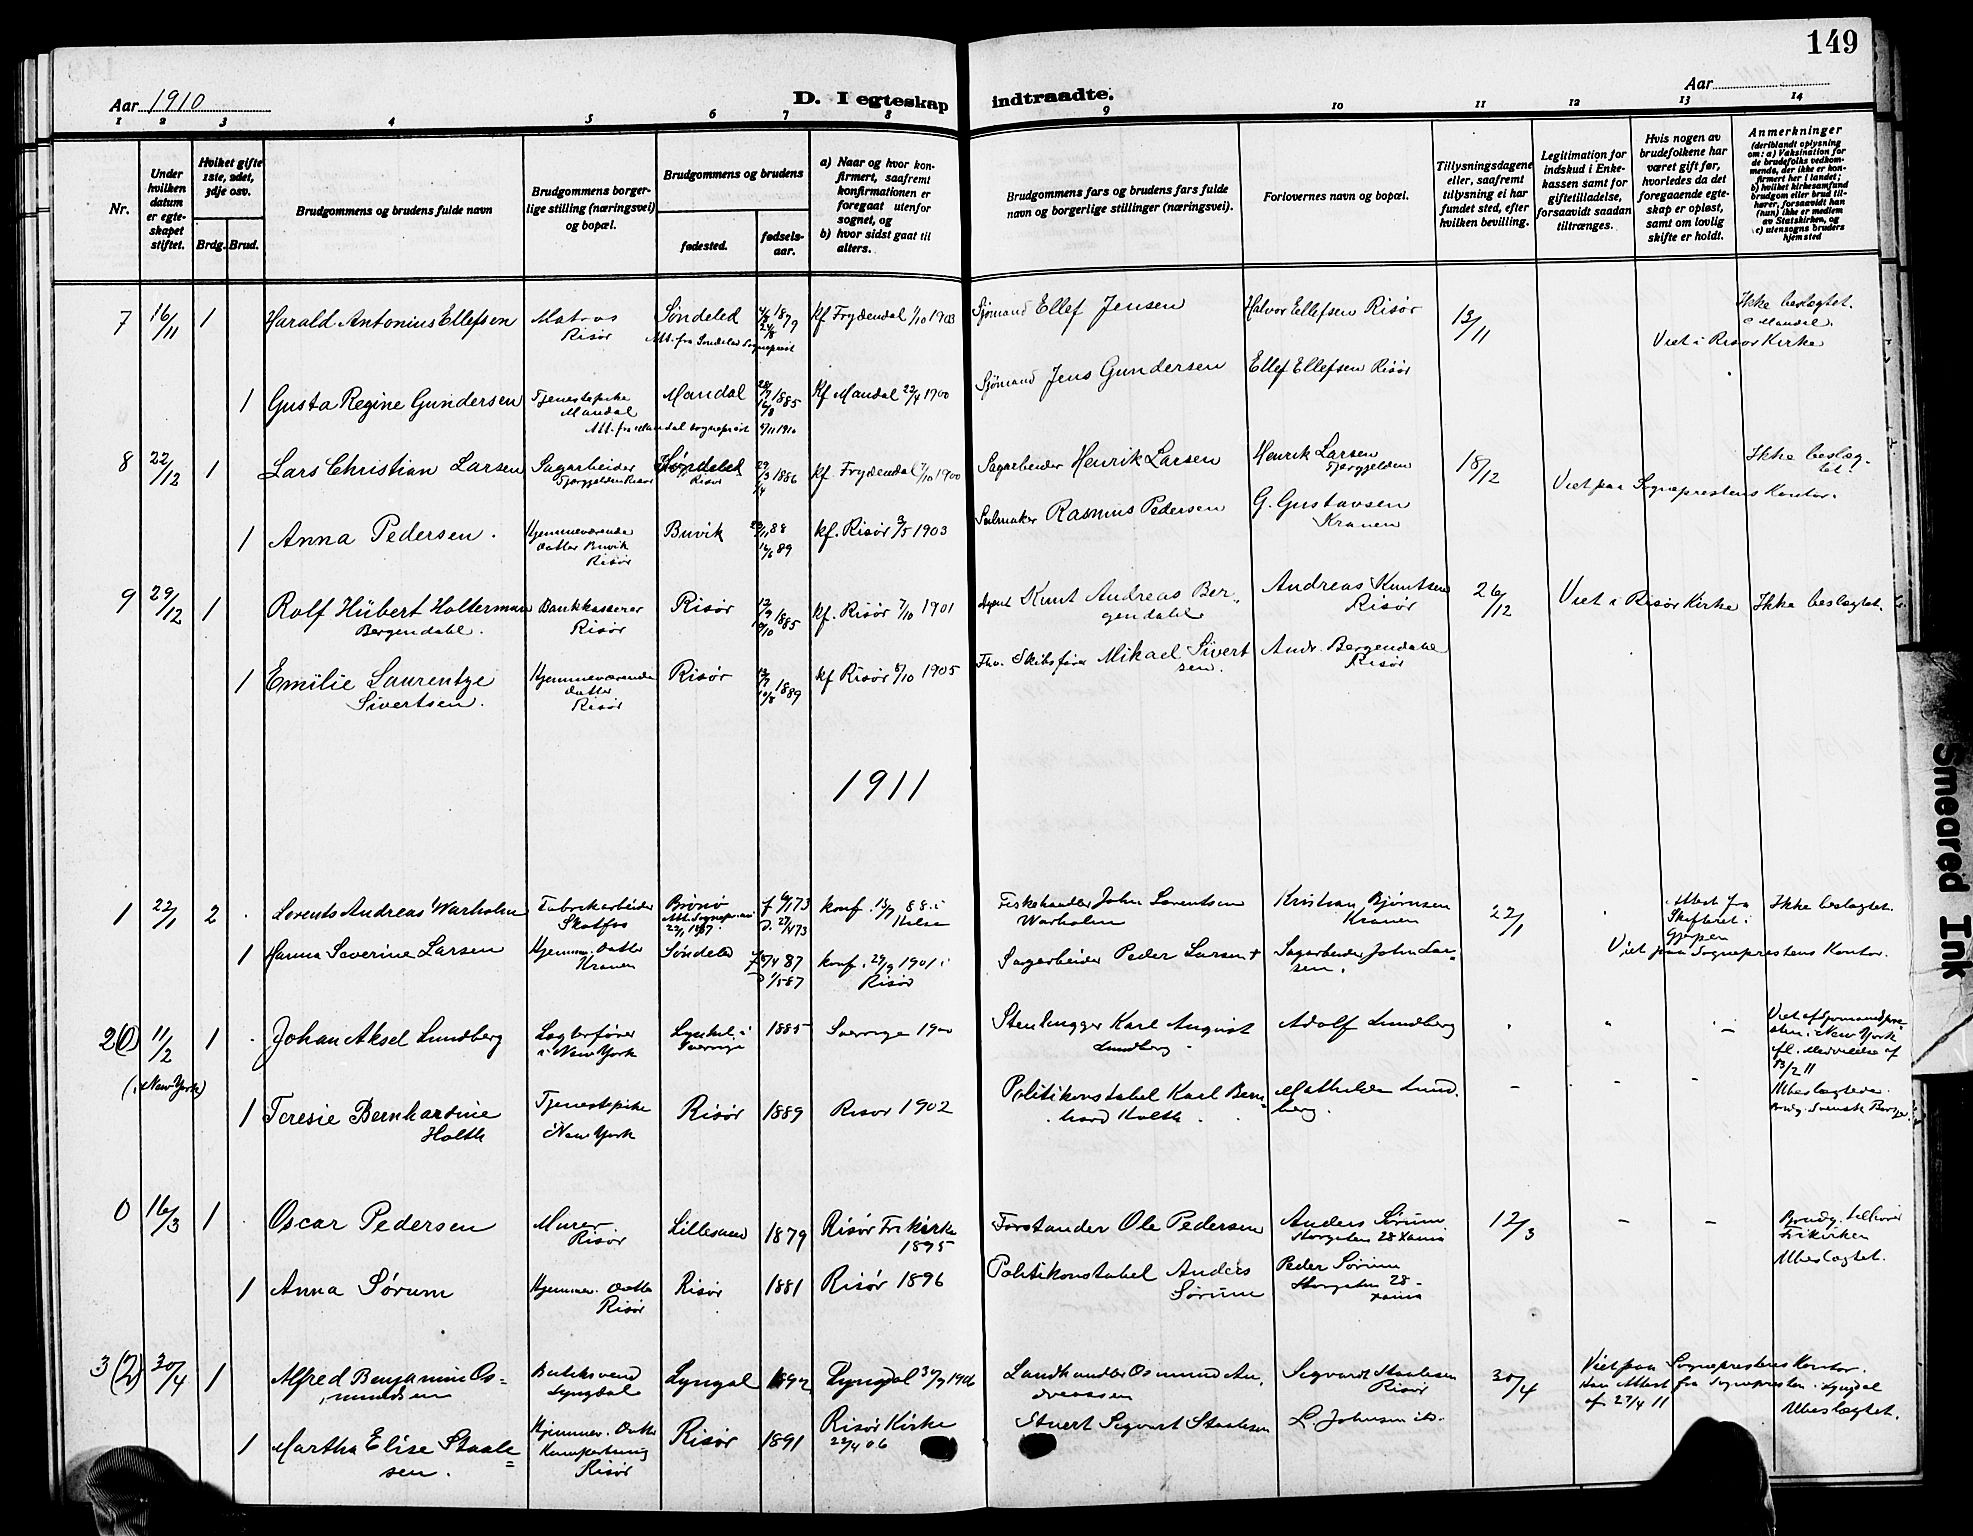 149
Aar 1910
D. I egteskap indtraadte.
Aar
1 2 3 4 5 6 7 8 9 10 11 12 13 14
Nr.
Under hvilken datum er egteskapet stiftet.
Hvilket gifte 1ste, 2det, 3dje osv.
Brdg. Brud.
Brudgommens og brudens fulde navn
Brudgommens borgerlige stilling (næringsvei) og bopæl.
Brudgommens og brudens
fødested.
fødselsaar.
a) Naar og hvor konfirmert, saafremt konfirmationen er foregaat utenfor sognet, og
b) hvor sidst gaat til alters.
Brudgommens fars og brudens fars fulde navn og borgerlige stillinger (næringsvei).
Forlovernes navn og bopæl.
Tillysningsdagene eller, saafremt tillysning ei har fundet sted, efter hvilken bevilling.
Legitimation for indskud i Enkekassen samt for giftetilladelse, forsaavidt saadan tiltrænges.
Hvis nogen av brudefolkene har været gift før, hvorledes da det foregaaende egteskap er opløst, samt om lovlig skifte er holdt.
Anmerkninger (deriblandt oplysning om: a) Vaksination for de brudefolks vedkommende, der ikke er konfirmert her i landet; b) hvilket kirkesamfund brudgom eller brud tilhører, forsaavidt han (hun) ikke er medlem av Statskirken, og c) utensogns bruders hjemsted
7 16/11 1 Harald Antonius Ellefsen Matros Risör Söndeled 1879 kf Frydendal 1/10 1903 Sjömand Ellef Jensen Halvor Ellefsen Risör 13/11 Ikke beslegtet.
c Mandal.
Att. fra Söndeled Sogneprest
Viet i Risør Kirke
1 Gusta Regine Gundersen Tjenestepike Mandal Mandal 1885 kf Mandal 22/4 1900 Sjömand Jens Gundersen Ellef Ellefsen Risör
Att. fra Mandal sogneprest 1910
8 22/12 1 Lars Christian Larsen Sagarbeider Risör Risør 1886 kf Frydendal 1900 Sagarbeider Henrik Larsen Henrik Larsen 18/12 Ikke beslegtet.
Viet paa Sogneprestens Kontor.
1 Anna Pedersen. Hjemmeværende datter Buvik Risör Buvik 88 89 kf. Risör 3/5 1903 Seilmaker Rasmus Pedersen G. Gustavsen Kranen
9 29/12 1 Rolf Hübert Holterman Bergendahl. Bankkasserer Risör Risör 1885 kf. Risör 7/10 1901 Agent Knut Andreas Bergendahl Andreas Knutsen Risör 26/12 Viet i Risør Kirke Ikke beslegtet.
1 Emilie Laurentze Sivertsen. Hjemmeværende datter Risör Risör 1889 kf Risör 8/10 1905 Fhv. Skibsfører Mikael Sivertsen. Andr. Bergendahl Risør
1911
1 22/1 2 Lorents Andreas Warholm Fabrikarbeider Skotfos Brönö konf. 15/7 88 i Fiskehandler John Lorentsen Warholm Kristian Björnsen Kranen 22/1 Attest fra Skifteret i Gjerpen Ikke beslegtet.
Viet paa Sogneprestens Kontor.
1 Hanna Severine Larsen Hjemmev. Datter Kranen Söndeled 87 konf. 29/9 1901 i Risør Sagarbeider Peder Larsen + Sagarbeider John Larsen.
2(0) 11/2 1 Johan Aksel Lundberg i New York Sverrige 1885 Sverrige 1900 Stenhugger Karl August Lundberg Adolf Lundberg
(i New York)
Viet af Sjömandspresten i New York
Ubeslegtede.
Brudg. Svensk Borger.
1 Teresie Bernhardine Holth Tjenestpike i New York Risör 1889 Risør 1902 Politikonstabel Karl Bernhard Holth. Mathilda Lundberg.
0 16/3 1 Oscar Pedersen Murer Risör Lillesand 1879 Risör Frikirke 1895 Forstander Ole Pedersen Anders Sörum. Storgaten 28 Xania 12/3 Brudg. tilhører Frikirken
Ubeslegtet.
1 Anna Sørum Hjemmev. Datter Risör Risör 1881 Risör 1896 Politikonstabel Anders Sörum Peder Sörum Storgaten 28 - Xania
3(2) 30/4 1 Alfred Benjamin Osmundsen Butiksvend Lyngdal Lyngdal 1892 Lyngdal 1906 Landhandler Osmund Andreassen Sigvardt Staalesen Risör 30/4 Viet paa Sogneprestens Kontor.
Attest fra Sognepresten i Lyngdal af 27/4 11
Ubeslegtet.
1 Martha Elise Staalesen. Hjemmev. Datter Risør Risör 1891 Risör Kirke 22/4 06 Stuert Sigvart Staalesen L. Johnsen
Smeared Ink